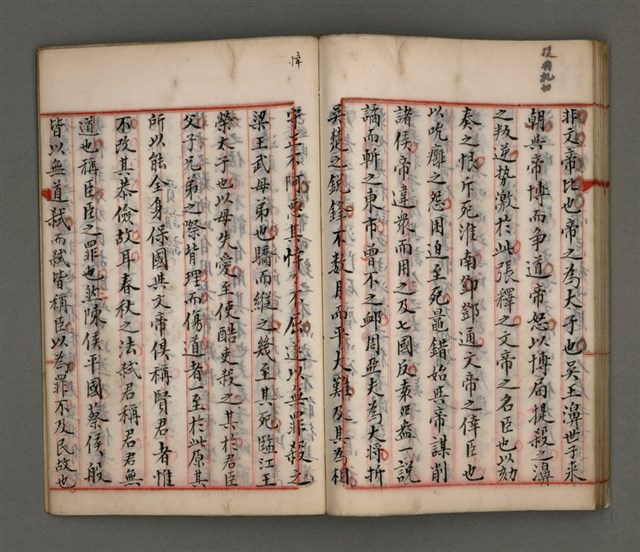 非文帝比也帝之為太子也吳王濞世子來
朝與帝博而爭道帝怒以博局提殺之濞
之叛逆勢激於此張釋之文帝之名臣也以劾
奏之恨斥死淮南鄧通文帝之倖臣也
以吮癰之怨困迫至死鼂錯始與帝謀削
諸侯帝違眾而用之及七國反袁盎一說
譎而斬之東市曾不之卹周亞夫為大將折
吳楚之銳鋒不数月而平大難及其為相
守正不阿惡其悻不屈遂以無罪殺之
梁王武母弟也驕而縱之幾至其死臨江王
榮太子也以母失愛至使酷吏殺之其於君臣
父子兄弟之際背理而傷道者至於此原其
所以能全身保國與文帝俱稱賢君者惟
不改其恭儉故耳春秋之法弒君稱君君無
道也稱臣臣之罪也然陳侯平國蔡侯般
皆以無道弒而弒皆稱臣以為罪不及民故也